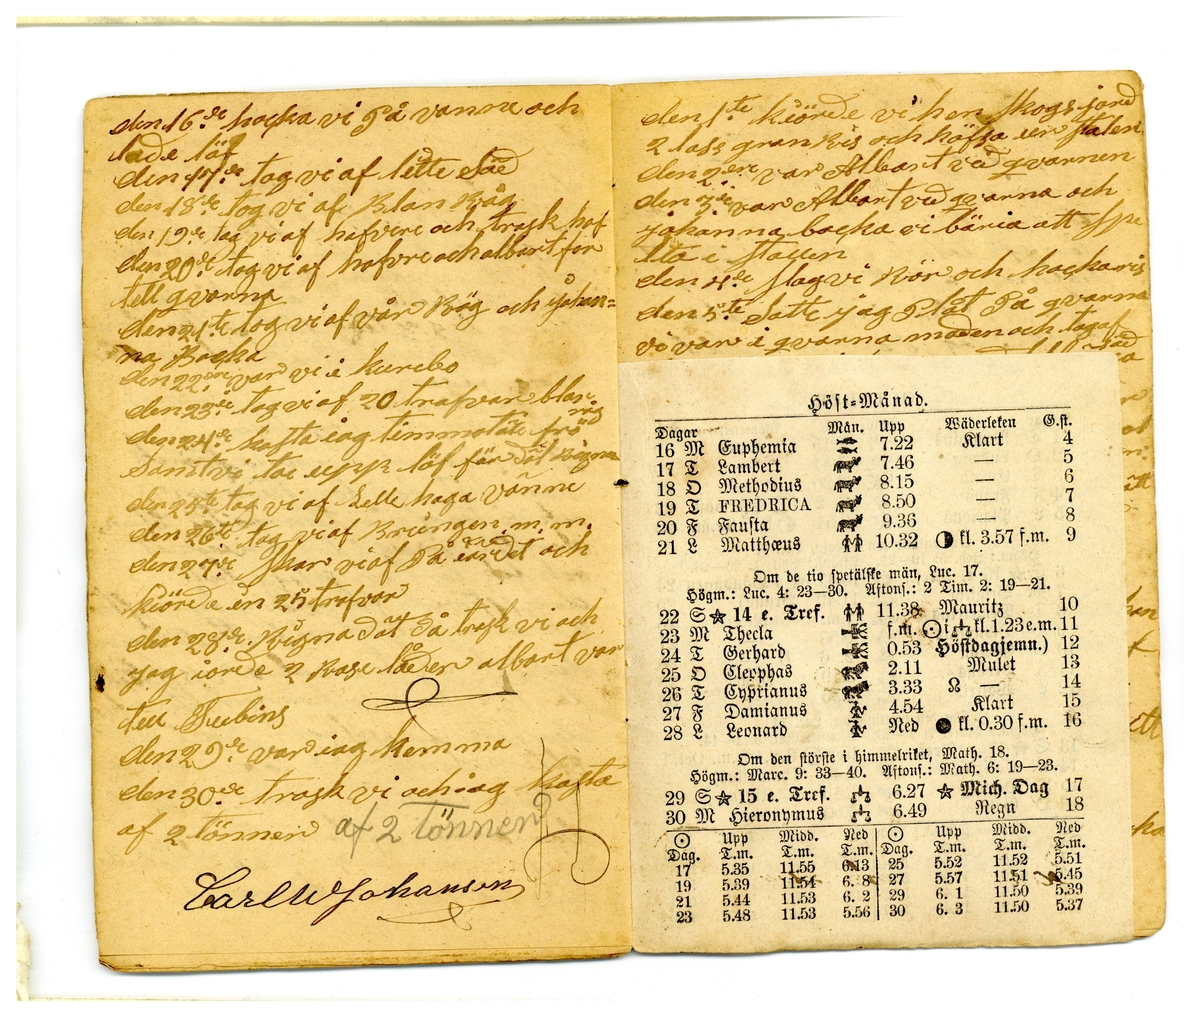 den 16de hacka vi På vanne och
lade löf
den 17de tog vi af lette Säd
den 18de tog vi af Blan Råg
den 19de tog vi af hafvre och trosk haf
den 20de tog vi af hafvre och albert for
tell qvarna
den 21te tog vi af vår Råg och johan=
na Backa
den 22en var vi i kurebo
den 23de tog vi af 20 trafvar blan
råg
den 24de kasta iag timmotäte frö
samt vi toe upp löf för dät rögna
den 25te tog vi af Lelle haga Vänne
den 26te tog vi af Brüngen m, m.
den 27de skar vi af På iordet och
kiörde en 25 trafvar
den 28de Rügna dät Så trosk vi och
jag iorde 2 Rase låder albart var
tell Tubins
den 29de var iag hemma
den 30de trosk vi och iag kasta
af 2 tönner
af 2 Tönner
Carl W Johanson
den 1te kiörde vi hem skogs jord
2 lass gran Ris och höfsa ur stalen
den 2en var Albart ved qvarnen
den 3de var Albart ved qvarna och
johanna backa vi bäria att spe
lla i stallen
den 4de slog vi Rör och hacka ris
den 5te Satte jag Plåt På qvarna
vi var i qvarna maden och tog af
Höst=Månad.
Dagar Mån. Upp Wäderleken G.st.
16 M Euphemia 7.22 Klart 4
17 T Lambert 7.46 — 5
18 O Methodius 8.15 — 6
19 T FREDRICA 8.50 — 7
20 F Fausta 9.36 — 8
21 L Matthæus 10.32 kl. 3.57 f.m. 9
Om de tio spetälske män, Luc. 17.
Högm.: Luc. 4: 23—30. Aftons.: 2 Tim. 2: 19—21.
22 S 14 e. Tref. 11.38 Mauritz 10
23 M Thecla f.m. ☉ i ♎ kl. 1.23 e.m. 11
24 T Gerhard 0.53 Höstdagjemn.) 12
25 O Cleophas 2.11 Mulet 13
26 T Cyprianus 3.33 ☊ — 14
27 F Damianus 4.54 Klart 15
28 L Leonard Ned ● kl. 0.30 f.m. 16
Om den störste i himmelriket, Math. 18.
Högm.: Marc. 9: 33—40. Aftons.: Math. 6: 19—23.
29 S 15 e. Tref. 6.27 Mich. Dag 17
30 M Hieronymus 6.49 Regn 18
☉ Upp Midd. Ned ☉ Upp Midd. Ned
Dag. T.m. T.m. T.m. Dag. T.m. T.m. T.m.
17 5.35 11.55 6.13 25 5.52 11.52 5.51
19 5.39 11.54 6. 8 27 5.57 11.51 5.45
21 5.44 11.53 6. 2 29 6. 1 11.50 5.39
23 5.48 11.53 5.56 30 6. 3 11.50 5.37